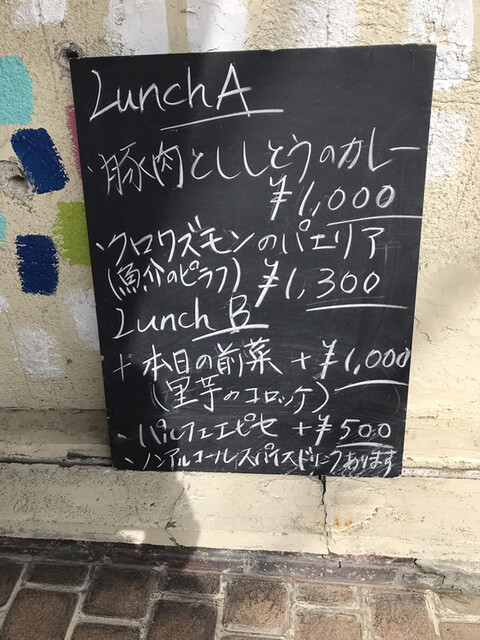 Lunch A
・豚肉とししとうのカレー
¥1,000
・クロワズモンのパエリア
(魚介のピラフ) ¥1,300
Lunch B
+本日の前菜 +¥1,000
(里芋のコロッケ)
・パルフェエピセ +¥500
・ノンアルコールスパイスドリンクあります